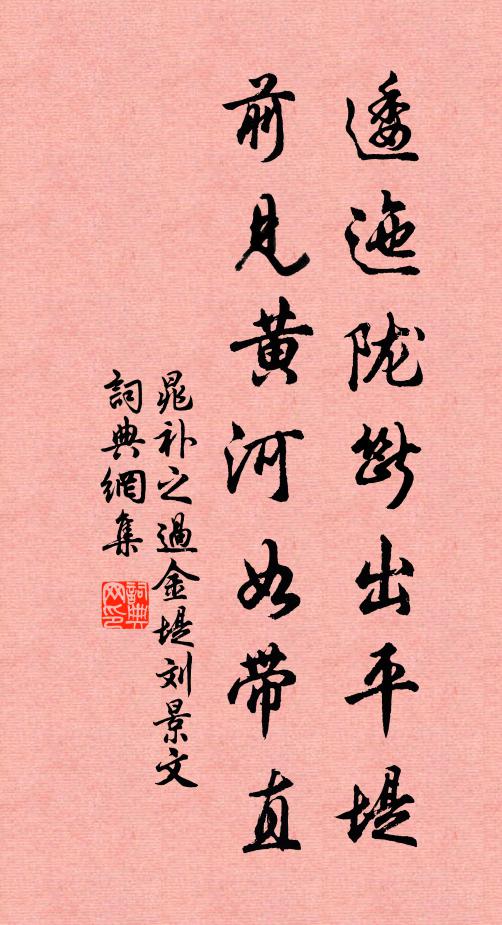 逶迤陇断出平堤
前见黄河如带直
晁补之過金堤刘景文
詞典網集
詞典网印